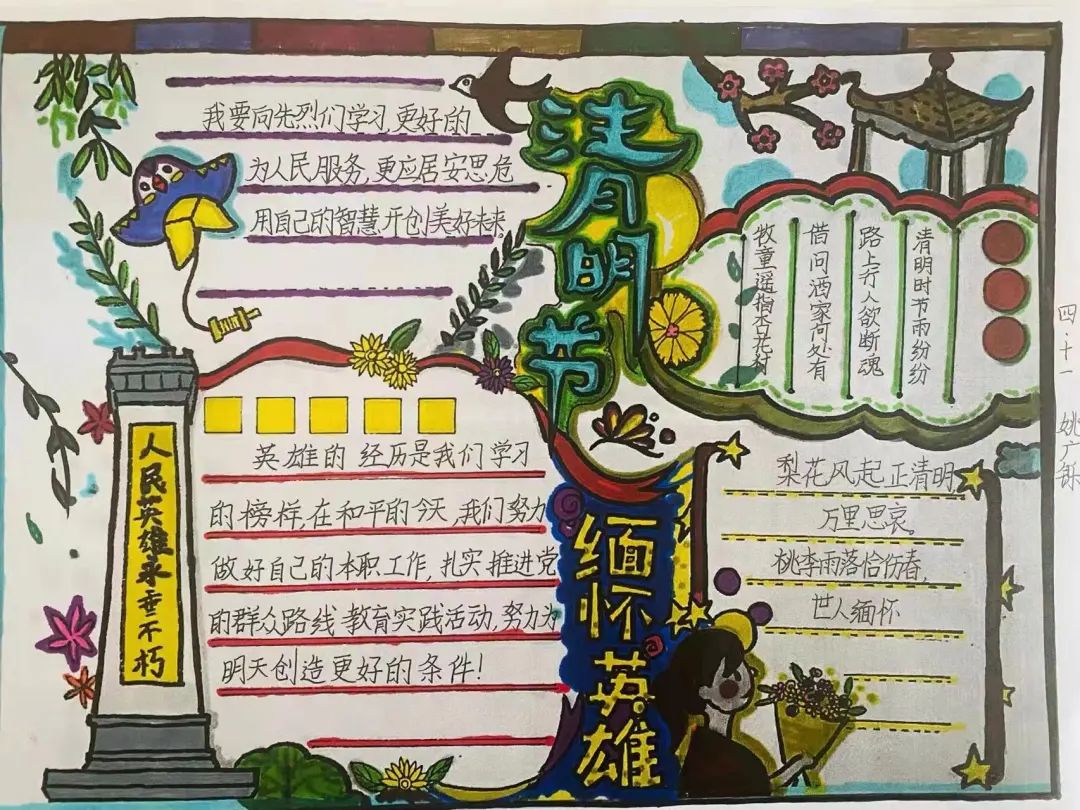 我要向先烈们学习更好的
为人民服务,更应居安思危
用自己的智慧开创美好未来
清明节
清明时节雨纷纷
路上行人欲断魂
借问酒家何处有
牧童遥指杏花村
人民英雄永垂不朽
英雄的经历是我们学习
的榜样,在和平的今天,我们努力
做好自己的本职工作,扎实推进党
的群众路线教育实践活动,努力为
明天创造更好的条件!
缅怀英雄
梨花风起正清明,
万里思哀。
桃李雨落恰伤春,
世人缅怀
四.十一 姚广铄